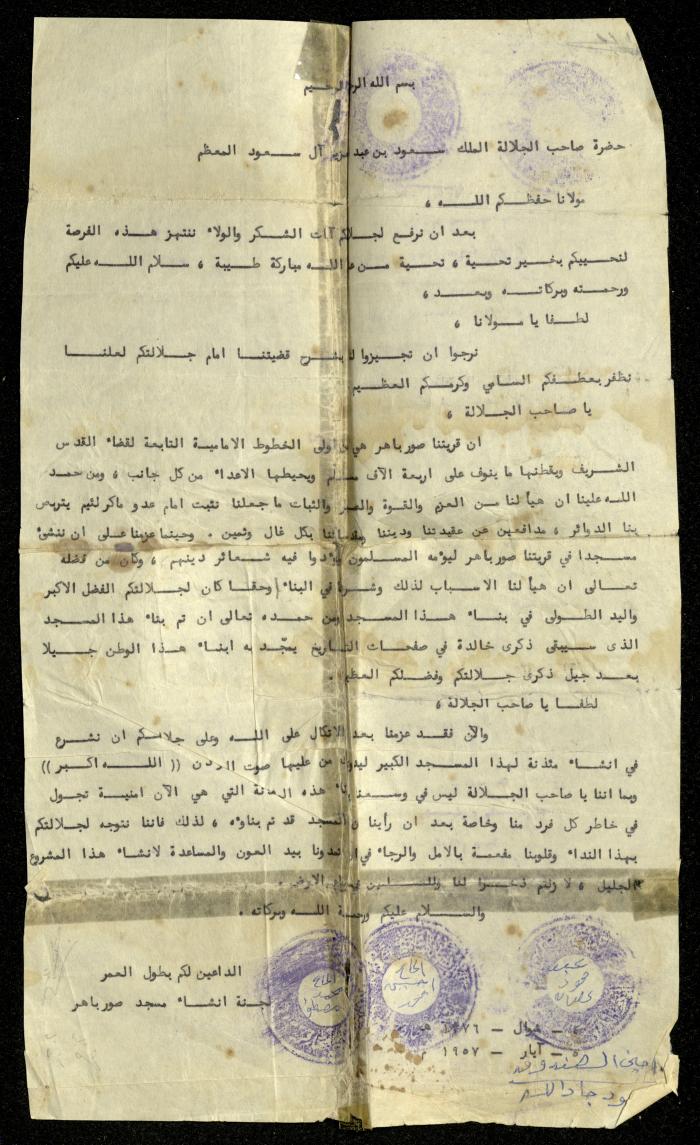 بسم الله الرحمن الرحيم
حضرة صاحب الجلالة الملك سعود بن عبد العزيز آل سعود المعظم
مولانا حفظكم الله ،
بعد ان نرفع لجلالتكم آيات الشكر والولاء ننتهز هذه الفرصة
لنحييكم بخير تحية ، تحية من عند الله مباركة طيبة ، سلام الله عليكم
ورحمته وبركاته وبعد ،
لطفا يا مولانا ،
نرجوا ان تجيزوا لنا بشرح قضيتنا امام جلالتكم لعلنا
نظفر بعطفكم السامي وكرمكم العظيم
يا صاحب الجلالة ،
ان قريتنا صورباهر هي في اولى الخطوط الامامية التابعة لقضاء القدس
الشريف ويقطنها ما ينوف على اربعة الآف مسلم ويحيطها الاعداء من كل جانب ، ومن حمد
الله علينا ان هيأ لنا من العزم والقوة والصبر والثبات ما جعلنا نثبت امام عدو ماكر لئيم يتربص
بنا الدوائر ، مدافعين عن عقيدتنا وديننا ومقدساتنا بكل غال وثمين . وحينما عزمنا على ان ننشيء
مسجدا في قريتنا صورباهر ليؤمه المسلمون يؤدوا فيه شعائر دينهم ، وكان من فضله
تعالى ان هيأ لنا الاسباب لذلك وشرعنا في البناء وحقا كان لجلالتكم الفضل الاكبر
واليد الطولى في بناء هذا المسجد ومن حمده تعالى ان تم بناء هذا المسجد
الذى سيبقى ذكرى خالدة في صفحات التاريخ يمجّد به ابناء هذا الوطن جيلا
بعد جيل ذكرى جلالتكم وفضلكم العظيم .
لطفا يا صاحب الجلالة ،
والآن فقد عزمنا بعد الاتكال على الله وعلى جلالتكم ان نشرع
في انشاء مئذنة لهذا المسجد الكبير ليدوي من عليها صوت المؤذن (( الله اكبر ))
وبما اننا يا صاحب الجلالة ليس في وسعنا بناء هذه المئذنة التي هي الآن امنية تجول
في خاطر كل فرد منا وخاصة بعد ان رأينا ان المسجد قد تم بناؤه ، لذلك فاننا نتوجه لجلالتكم
بهذا النداء وقلوبنا مفعمة بالامل والرجاء في ان تمدونا بيد العون والمساعدة لانشاء هذا المشروع
الجليل ، لا زلتم ذخرا لنا وللمسلمين في الارض .
والسلام عليكم ورحمة الله وبركاته .
الداعين لكم بطول العمر
لجنة انشاء مسجد صورباهر
الحاج
الحاج
شوال - ١٣٧٦ هـ
آيار - ١٩٥٧ م
امين الصندوق
جاد الله